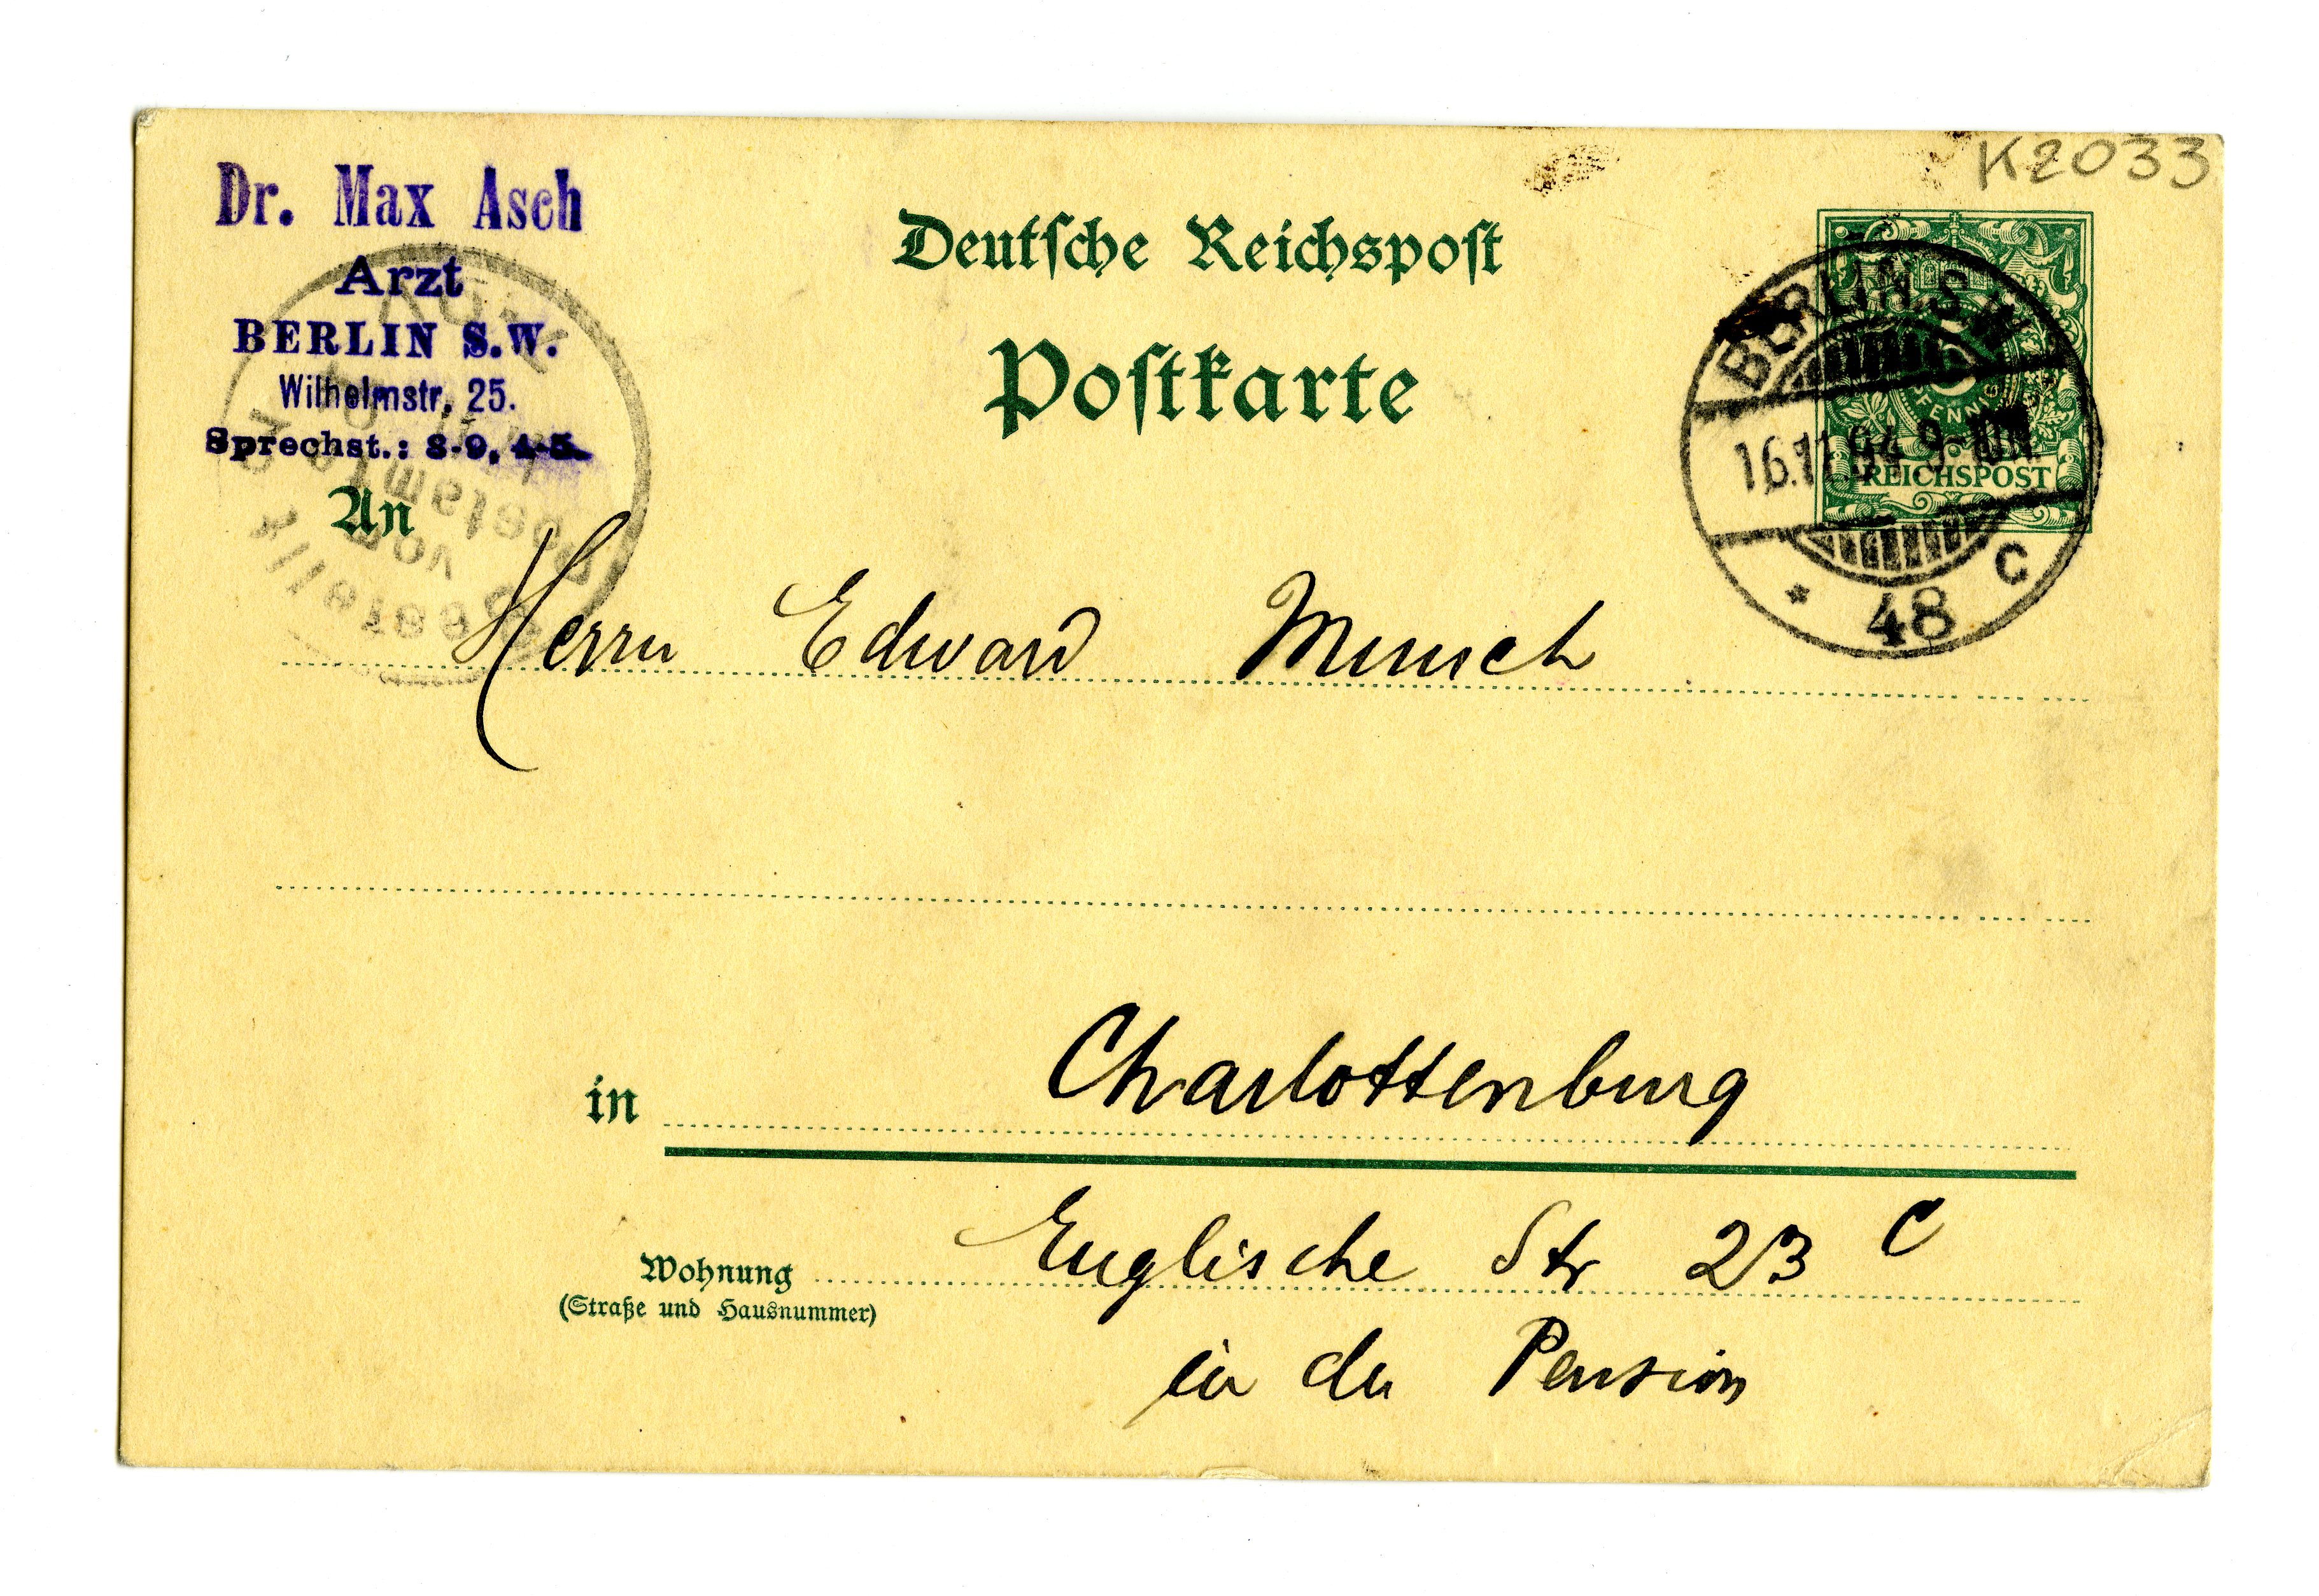 K2033
Dr. Max Asch
Arzt
BERLIN S.W.
Wilhelmstr. 25.
Sprechst.: 8-9, 4-5.
Deutsche Reichspost
Postkarte
PFENNIG
REICHSPOST
BERLIN.S.W.
16.11.94 9-10N.
* 48 C
Bestellt
vom
Postamte
An
Herrn Edward Munch
in Charlottenburg
Wohnung Englische Str 23 C
(Straße und Hausnummer)
in der Pension